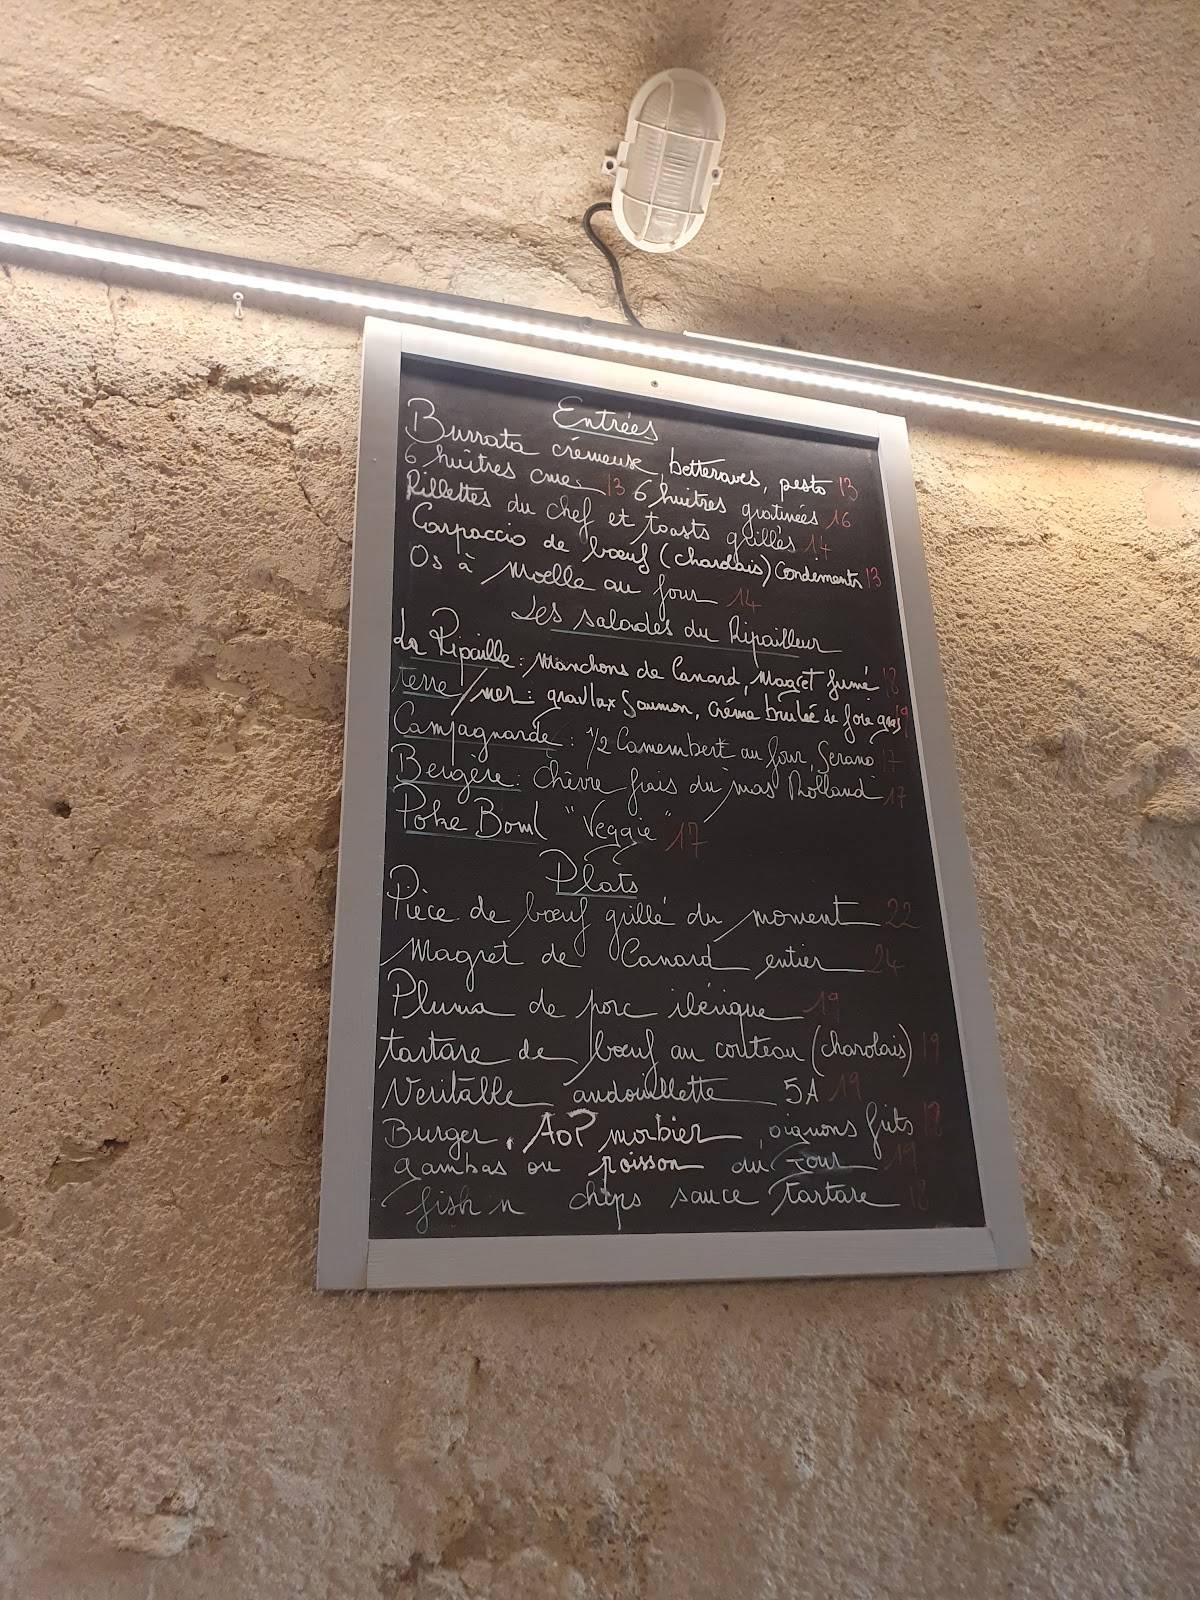 Entrées
Burrata crémeuse, betteraves, pesto 13
6 huîtres crues 13 6 huîtres gratinées 16
Rillettes du chef et toasts grillés 14
Carpaccio de bœuf (charolais) Condiments 13
Os à Moelle au four 14
Les salades du Ripailleur
La Ripaille : Manchons de Canard, Magret fumé 18
terre/mer : gravlax Saumon, Crème brulée de foie gras 19
Campagnarde : 1/2 Camembert au four, Serano 17
Bergère : Chèvre frais du mas Rolland 17
Poke Bowl "Veggie" 17
Plats
Pièce de bœuf grillé du moment 22
Magret de Canard entier 24
Pluma de porc ibérique 19
tartare de bœuf au couteau (charolais) 19
Veritable andouillette 5A 19
Burger, AOP morbier, oignons frits 18
gambas ou poisson du jour 19
fish n chips sauce tartare 18